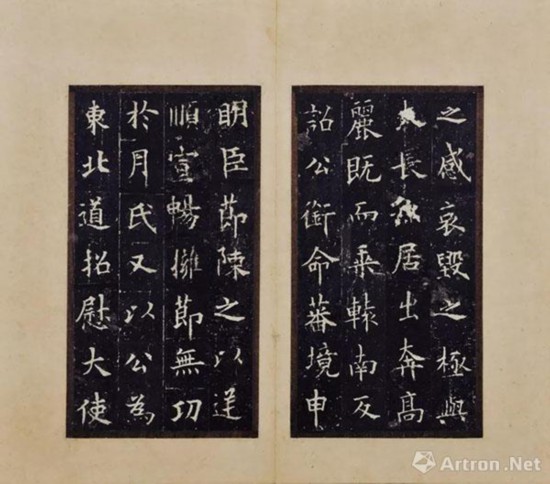 之感哀毀之極與
長居出奔高
麗既而乘轅南反
詔公銜命蕃境申
眀臣節陳之以逆
順宣暢擁節無功
於月氏又以公為
東北道招慰大使
Artron.Net